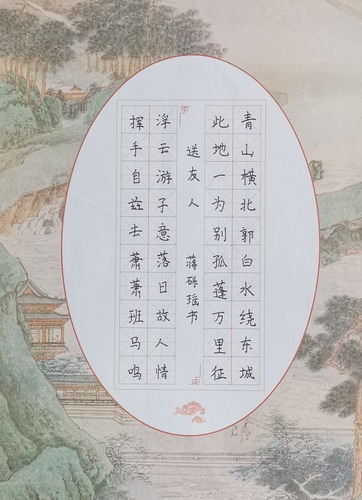 青山横北郭白水绕东城
此地一为别孤蓬万里征
送友人 蒋硕瑶书
浮云游子意落日故人情
挥手自兹去萧萧班马鸣